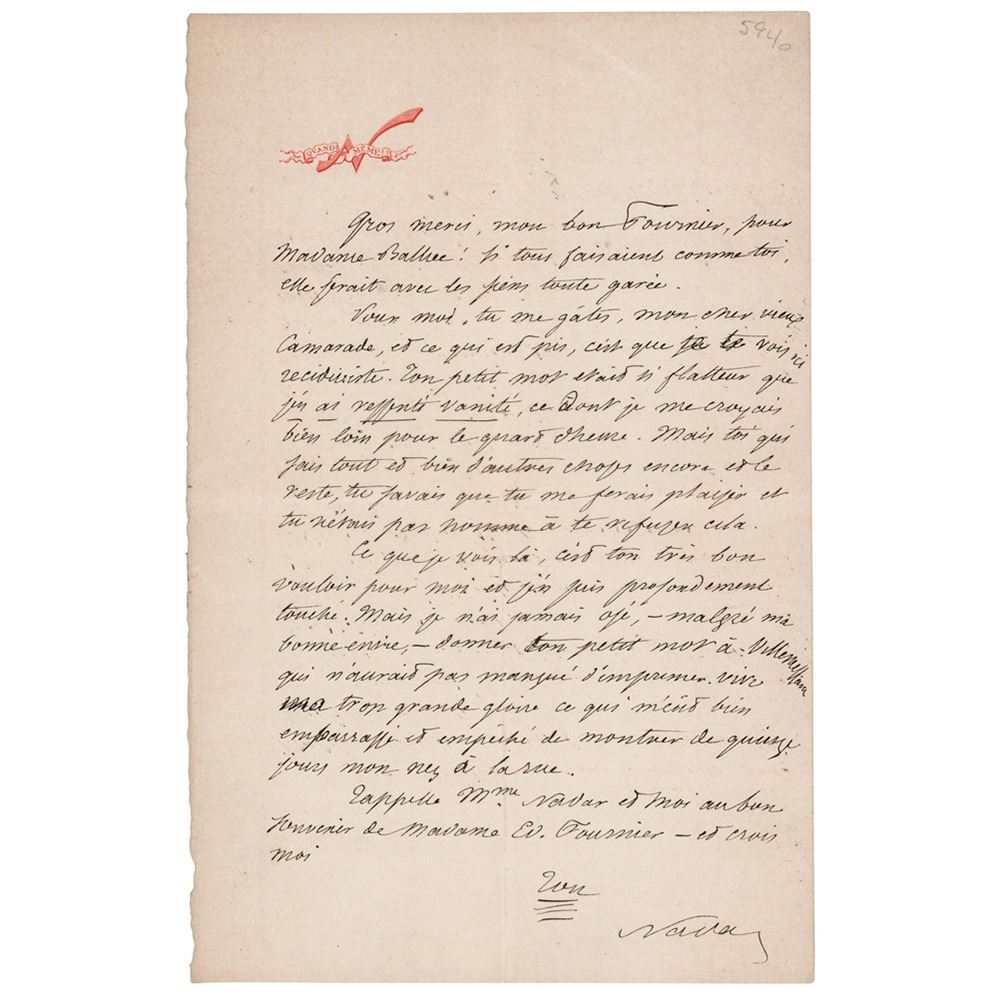 5940
QUAND MÊME!
Gros merci, mon bon Fournier, pour
Madame Ballue! Si tous faisaient comme toi,
elle serait avec les siens toute garée.
Pour moi, tu me gâtes, mon cher vieux
Camarade, et ce qui est pis, c'est que je te vois ici
recidiviste. Ton petit mot etait si flatteur que
j'en ai ressenti vanité, ce dont je me croyais
bien loin pour le quart d'heure. Mais toi qui
sais tout et bien d'autres choses encore et le
reste, tu savais que tu me ferais plaisir et
tu n'étais pas homme à te refuser cela.
Ce que je vois là, c'est ton très bon
vouloir pour moi et j'en suis profondement
touché. Mais je n'ai jamais osé, – malgré ma
bonne envie, – donner ton petit mot à Villemessant
qui n'aurait pas manqué d'imprimer vive
ma trop grande gloire ce qui m'eût bien
embarrassé et empêché de montrer de quinze
jours mon nez à la rue.
Rappelle Mme Nadar et moi au bon
souvenir de Madame Ed. Fournier – et crois
moi
Ton
Nadar